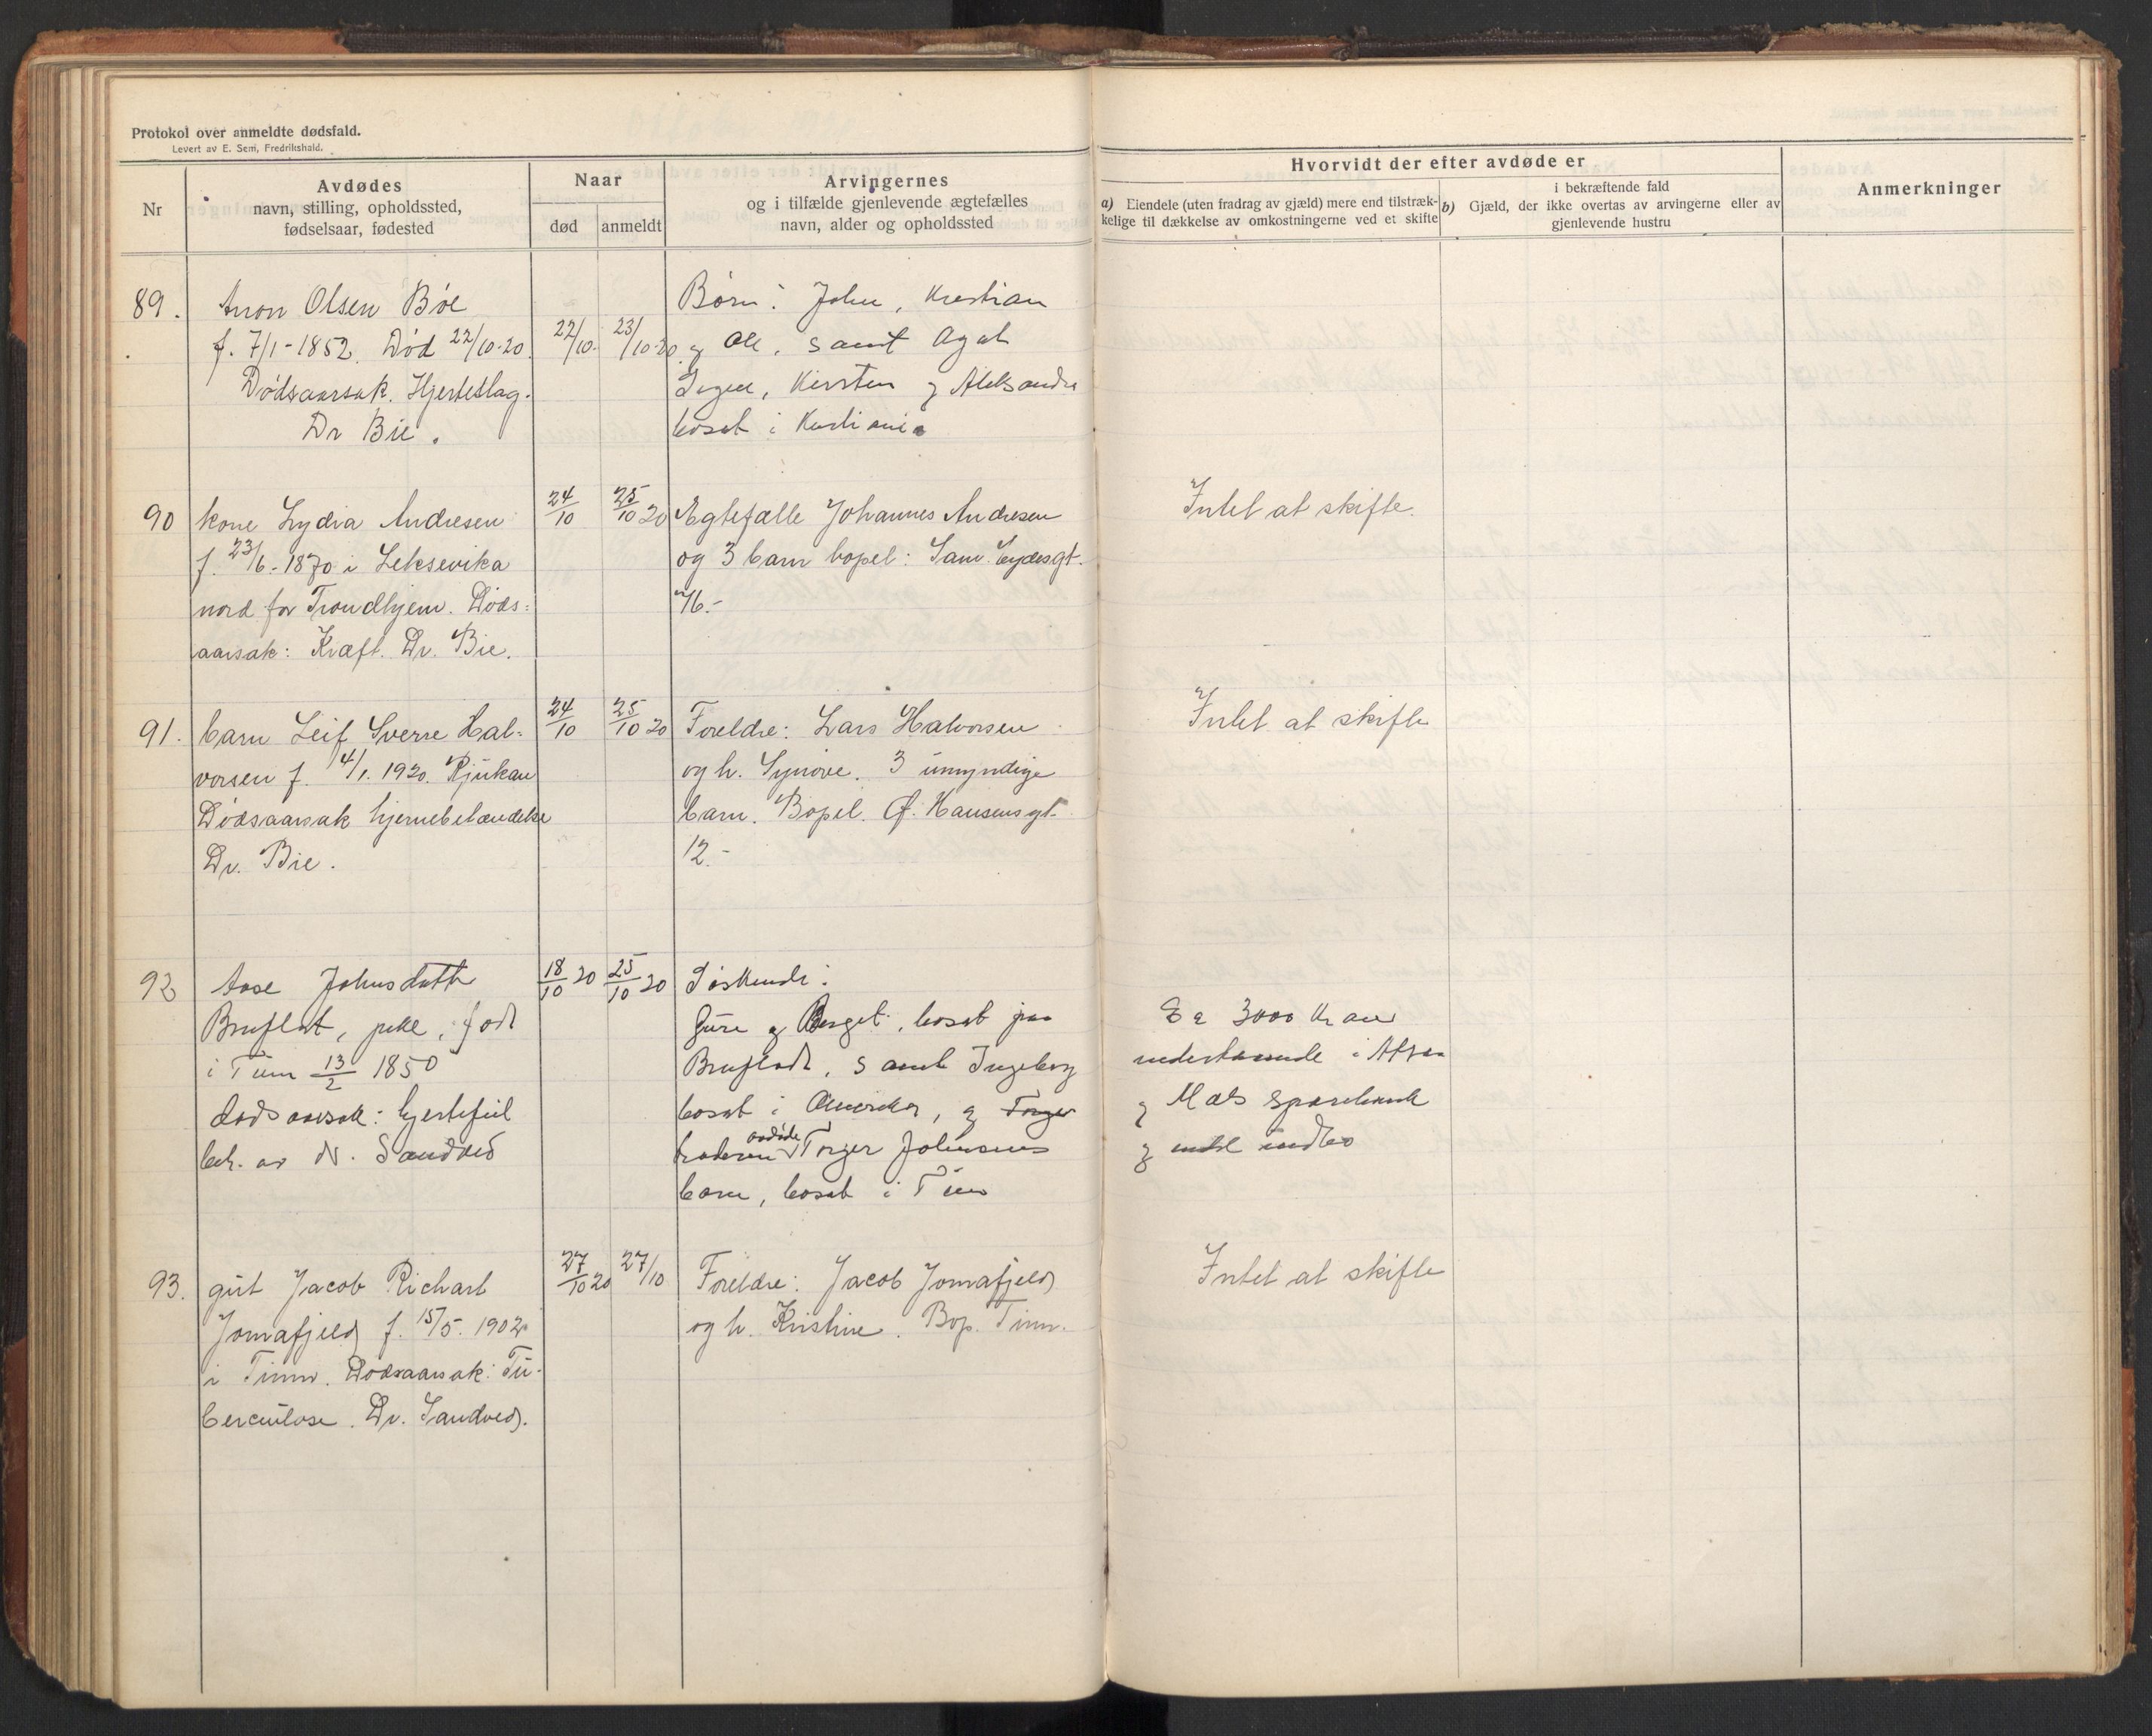 Protokol over anmeldte dødsfald.
Levert av E. Sem, Fredrikshald.
Nr
Avdødes
navn, stilling, opholdssted,
fødselsaar, fødested
Naar
død
anmeldt
Arvingernes
og i tilfælde gjenlevende ægtefælles
navn, alder og opholdssted
Hvorvidt der efter avdøde er
a) Eiendele (uten fradrag av gjæld) mere end tilstræk-
kelige til dækkelse av omkostningerne ved et skifte
i bekræftende fald
b) Gjæld, der ikke overtas av arvingerne eller av
gjenlevende hustru
Anmerkninger
89.
Anon Olsen Bøe
f. 7/1-1852. Død 22/10-20.
Dødsaarsak. Hjerteslag.
Dr Bie.
22/10.
23/10-20
Børn: John, Kristian
og Ole, samt
Kirsten og Aleksandra
bosat i Kristiania
90
kone Lydia Andresen
f. 23/6-1870 i Leksevika
nord for Trondhjem. Døds-
aarsak: Kræft. Dr. Bie.
24/10
25/10 20
Egtefælle Johannes Andresen
og 3 barn bopel: Sam. Eydesgt.
76.-
Intet at skifte.
91.
barn Leif Sverre Hal-
vorsen f. 14/1. 1920. Rjukan
Dødsaarsak hjernebetændelse
Dr. Bie.
24/10
25/10 20
Foreldre: Lars Halvorsen
og h. Synøve. 3 umyndige
barn. Bopel. Hansensgt.
12.-
Intet at skifte
92
Aase Johnsdatter
Bruflat, pike, født
i Tinn 13/2 1850
dødsaarsak: hjertefeil
beh. av dr. Sandved
18/10 20
25/10 20
Søskende:
Gure og Berget, bosat paa
Brufladt, samt Ingeborg
bosat i Amerika, og Torger
broderen avdøde Torger Johnsens
barn, bosat i Tinn
Ca 3000 Kr
indestaaende i Atraa
og Mæls sparebank
og indbo
93.
gut Jacob Richart
Jomafjeld f. 15/5. 1902
i Tinn. Dødsaarsak: Tu-
berculose. Dr. Sandved.
27/10 20
27/10
Foreldre: Jacob Jomafjeld
og h. Kristine. Bop. Tinn.
Intet at skifte